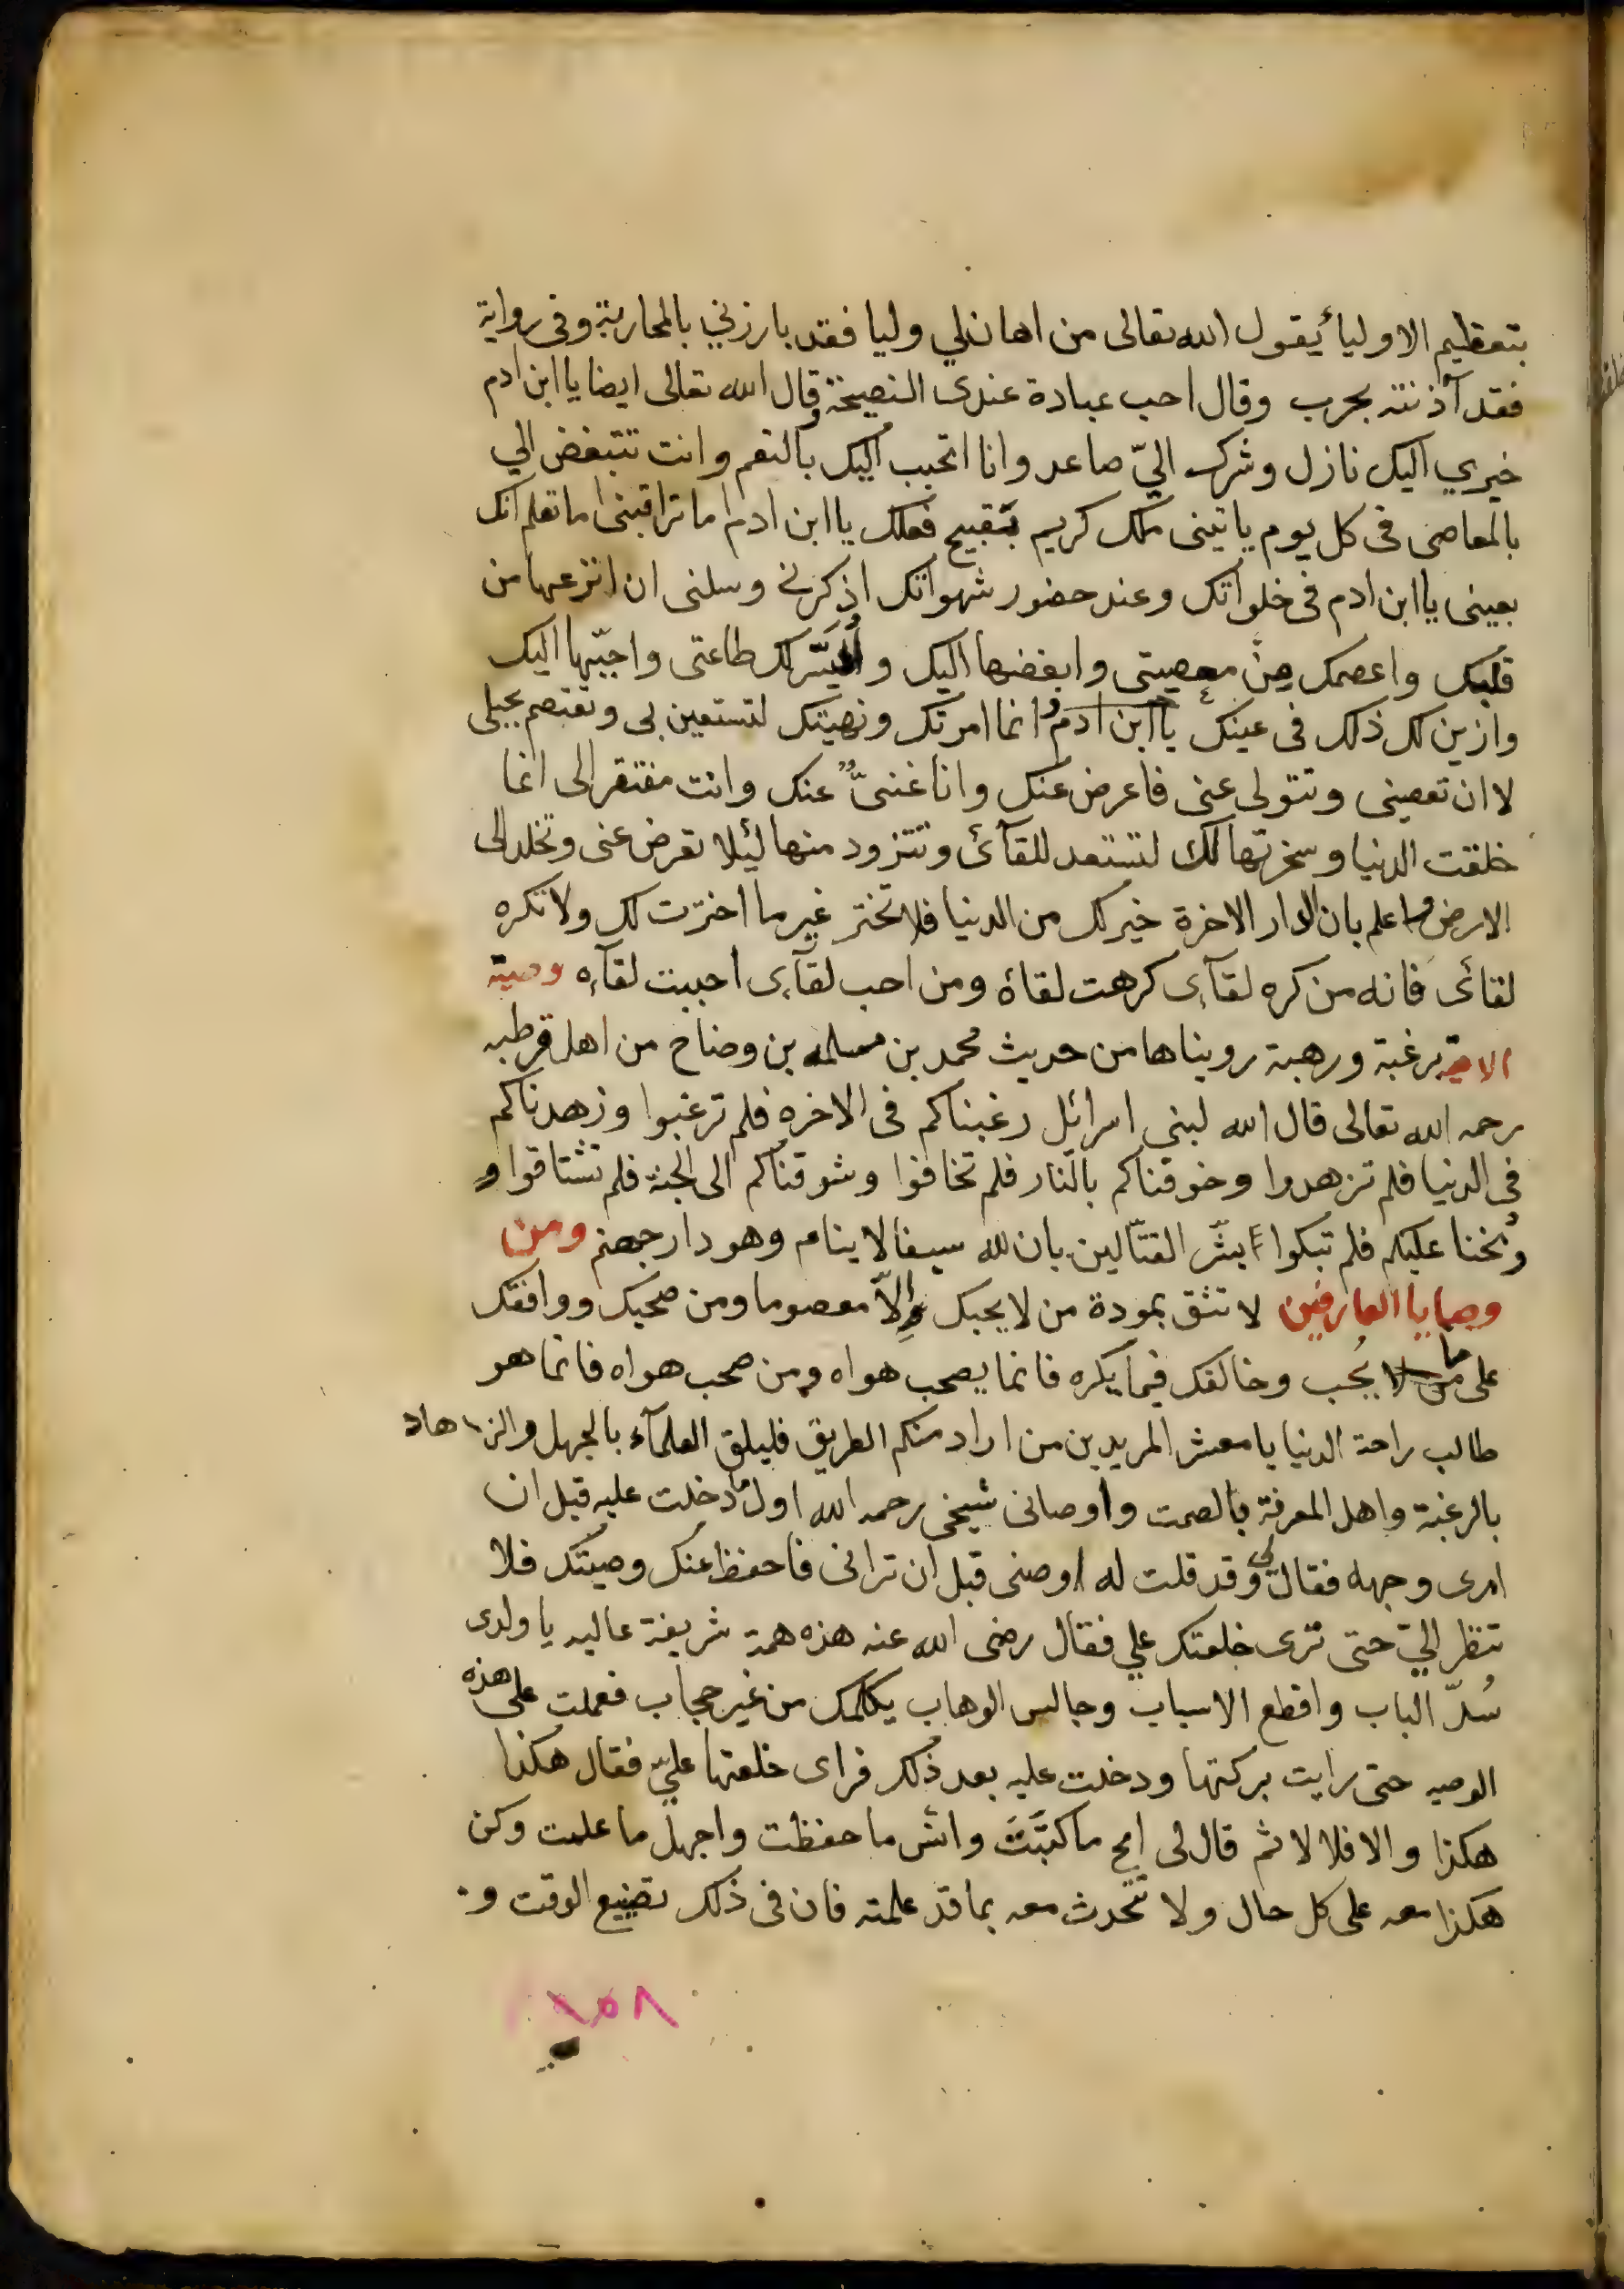 بتعظيم الاولياء يقول الله تعالى من اهان لي وليا فقد بارزني بالمحاربة وفى رواية
فقد آذنته بحرب وقال احب عبادة عندى النصيحة وقال الله تعالى ايضا يا ابن ادم
خيري اليك نازل وشرك اليّ صاعد وانا اتحبب اليك بالنعم وانت تتبغض الي
بالمعاصى فى كل يوم ياتينى ملك كريم بقبيح فعلك يا ابن ادم اما تراقبنى اما تعلم انك
بعينى يا ابن ادم فى خلواتك وعند حضور شهواتك اذكرنى وسلنى ان انزعها من
قلبك واعصمك من معصيتى وابغضها اليك واُيَسّر لك طاعتى واحبّبها اليك
وازين لك ذلك فى عينك يا ابن ادم انما امرتك ونهيتك لتستعين بى وتعتصم بحبلى
لا ان تعصينى وتتولى عنى فاعرض عنك وانا غنىٌّ عنك وانت مفتقر الى انما
خلقت الدنيا وسخرتها لك لتستعد للقآئى وتتزود منها لئلا تعرض عنى وتخلد الى
الارض واعلم بان الدار الاخرة خير لك من الدنيا فلا تختر غير ما اخترت لك ولا تكره
لقائى فانه من كره لقآءى كرهت لقاءه ومن احب لقآءى احببت لقآءه وصية
الاهيه برغبة ورهبة رويناها من حديث محمد بن مسلمه بن وضاح من اهل قرطبه
رحمه الله تعالى قال الله لبنى اسرائل رغبناكم فى الاخره فلم ترغبوا وزهدناكم
فى الدنيا فلم تزهدوا وخوفناكم بالنار فلم تخافوا وشوقناكم الى الجنة فلم تشتاقوا و
ونُحنا عليكم فلم تبكوا بشّر القتّالين بان لله سيفا لا ينام وهو دار جهنم ومن
وصايا العارفين لا تثق بمودة من لا يحبك الّا معصوما ومن صحبك ووافقك
على ما يُحب وخالفك فيما يكره فانما يصحب هواه ومن صحب هواه فانما هو
طالب راحة الدنيا يا معشر المريدين من اراد منكم الطريق فليلق العلمآء بالجهل والزهاد
بالرغبة واهل المعرفة بالصمت واوصانى شيخى رحمه الله اول ما دخلت عليه قبل ان
ارى وجهه فقال لى وقد قلت له اوصنى قبل ان ترانى فاحفظ عنك وصيتك فلا
تنظر اليّ حتى ترى خلعتك علي فقال رضى الله عنه هذه همة شريفة عاليه يا ولدى
سُدّ الباب واقطع الاسباب وجالس الوهاب يكلمك من غير حجاب فعملت على هذه
الوصيه حتى رايت بركتها ودخلت عليه بعد ذلك فراى خلعتها عليّ فقال هكذا
هكذا والا فلا لا ثم قال لى امح ما كتبْتَ وانس ما حفظت واجهل ما علمت وكن
هكذا معه على كل حال ولا تتحدث معه بما قد علمته فان فى ذلك تضييع الوقت و